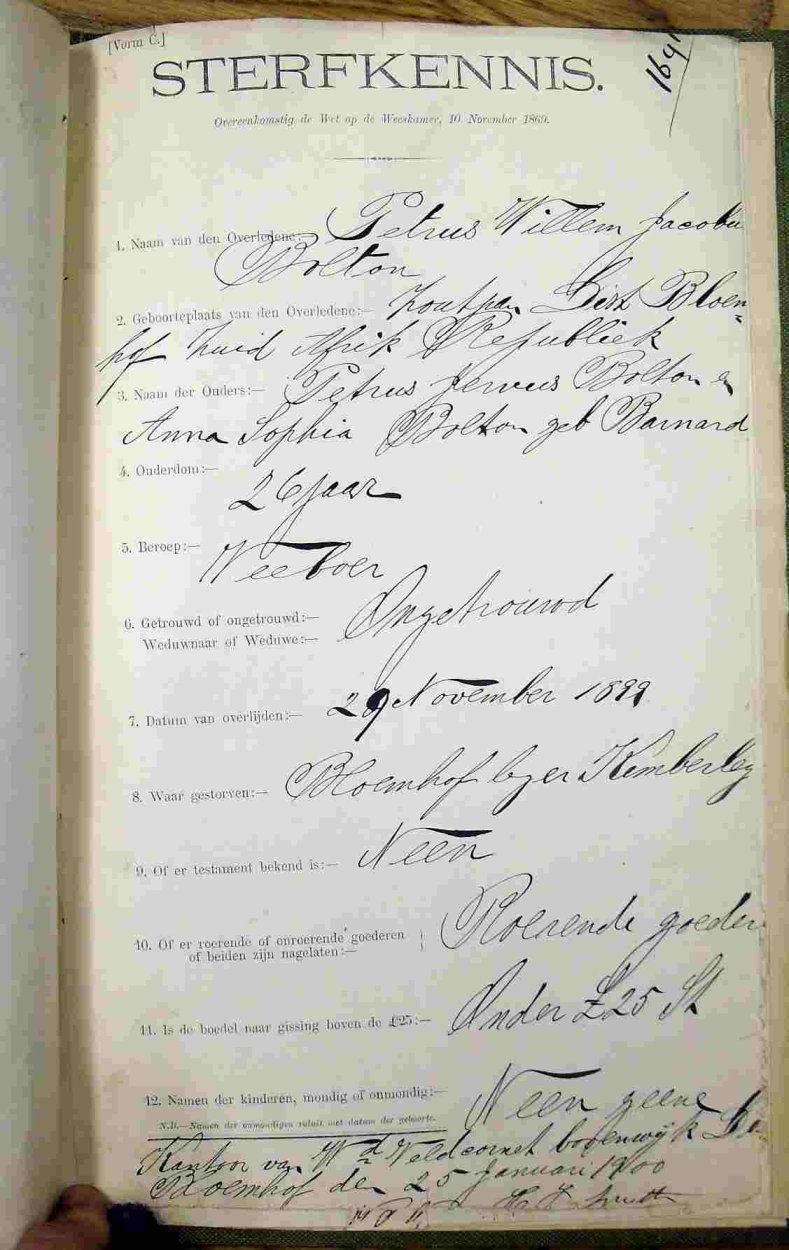 [Vorm C.]
STERFKENNIS.
Overeenkomstig de Wet op de Weeskamer, 10 November 1869.
1. Naam van den Overledene:— Petrus Willem Jacobu
Bolton
2. Geboorteplaats van den Overledene:— Zoutpan Dist Bloem=
hof Zuid Afrik Republiek
3. Naam der Ouders:— Petrus Bolton en
Anna Sophia Bolton geb Barnard
4. Ouderdom:—
26 jaar
5. Beroep:— Veeboer
6. Getrouwd of ongetrouwd:— Ongetrouwd
Weduwnaar of Weduwe:—
7. Datum van overlijden:— 29 November 1899
8. Waar gestorven:— Bloemhof lager Kimberley
9. Of er testament bekend is:— Neen
10. Of er roerende of onroerende goederen Roerende goederen
of beiden zijn nagelaten:—
11. Is de boedel naar gissing boven de £25:— Onder £25 St
12. Namen der kinderen, mondig of onmondig:— Neen geene
N.B.—Namen der onmondigen voluit met datum der geboorte.
Kantoor van Wd Veldcornet bovenwijk
Bloemhof den 25 Januari 1900